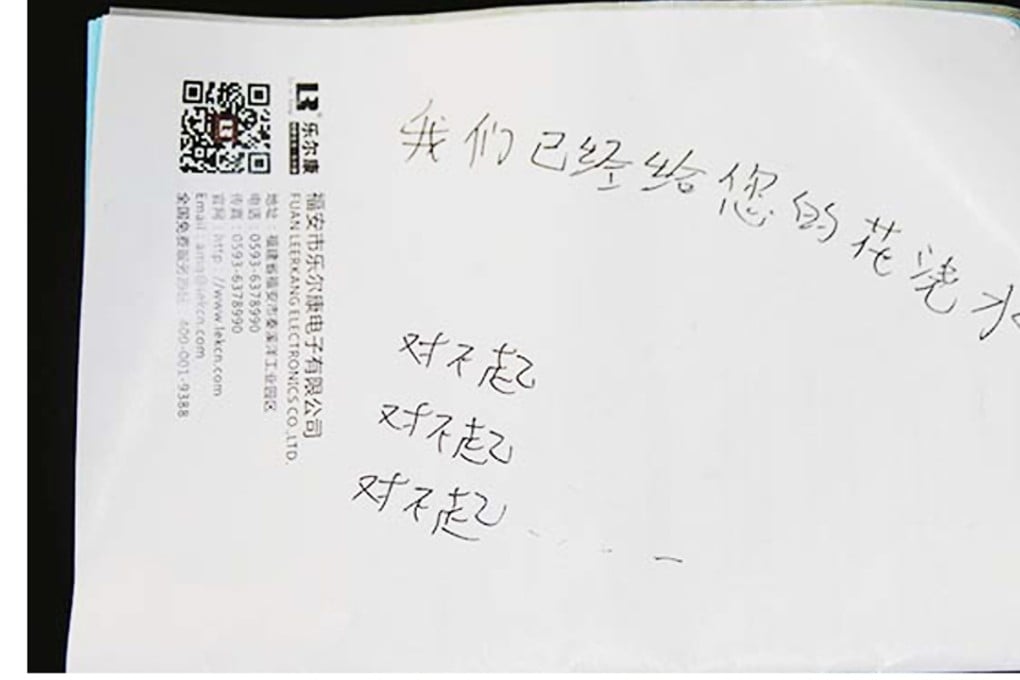 我们已经给您的花浇水
对不起
对不起
对不起......
乐尔康
福安市乐尔康电子有限公司
FUAN LEERKANG ELECTRONICS CO.,LTD.
地址：福建省福安市秦溪洋工业园区
电话：0593-6378990
传真：0593-6378990
官网：http://www.lekcn.com
全国免费服务热线：400-001-9388